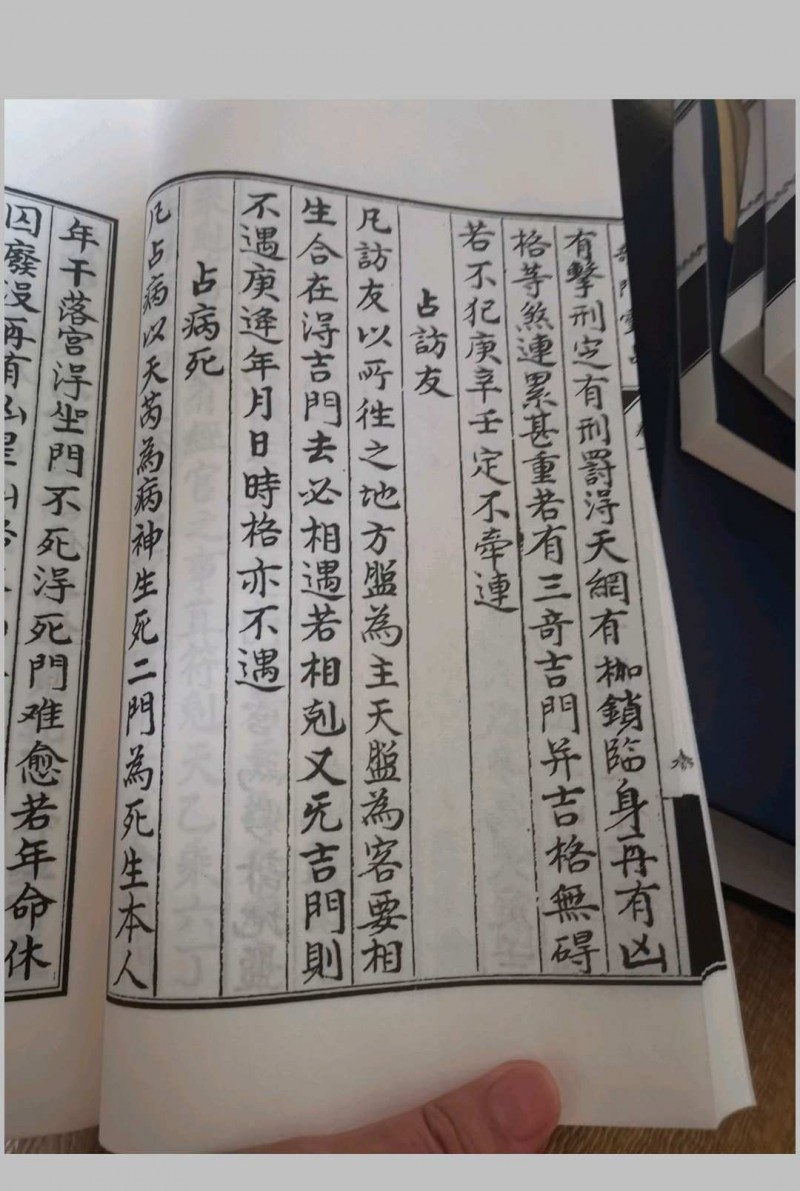 有擊刑定有刑罸淂天網有枷鎖臨身再有凶
格等煞連累甚重若有三竒吉門并吉格無碍
若不犯庚辛壬定不牽連
占訪友
凡訪友以所徃之地方盤為主天盤為客要相
生合在淂吉門去必相遇若相剋又旡吉門則
不遇庚逄年月日時格亦不遇
占病死
凡占病以天芮為病神生死二門為死生本人
年干落宫淂生門不死淂死門难愈若年命休
囚廢没再有凶星凶格